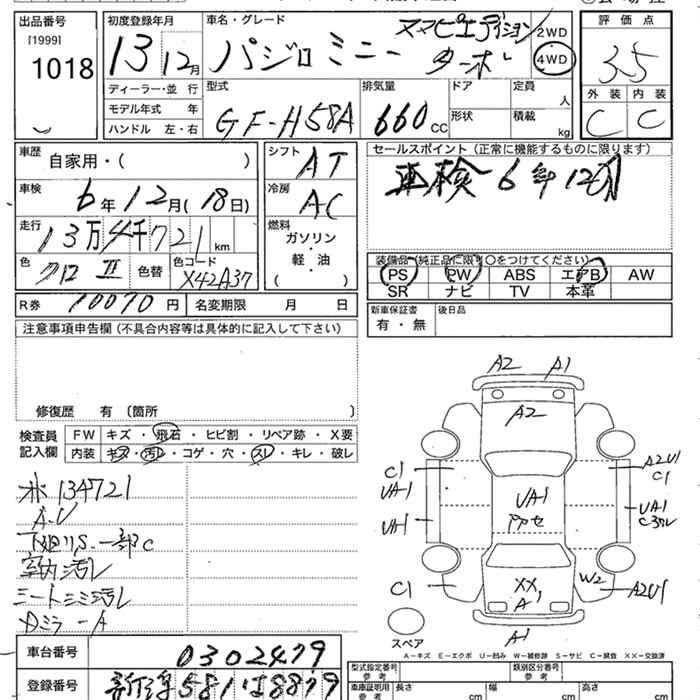 出品番号
[1999]
1018
初度登録年月
13 12月
車名・グレード
パジロ ミニー
2WD
4WD
評価点
3.5
外装 内装
C C
ディーラー・並行
モデル年式 年
ハンドル 左・右
型式
GF-H58A
排気量
660 CC
ドア
形状
定員
人
積載
kg
車歴
自家用・( )
車検
6年12月(18日)
走行
13万4千721 km
色
クロ II
色替
色コード
X42A37
シフト
AT
冷房
AC
燃料
ガソリン
・
軽・油
( )
セールスポイント (正常に機能するものに限ります)
車検 6年12月
装備品 (純正品に限り○をつけてください)
PS PW ABS エアB AW
SR ナビ TV 本革
R券 10070 円 名変期限 月 日
新車保証書
有・無
後日品
注意事項申告欄 (不具合内容等は具体的に記入して下さい)
修復歴 有 〔箇所 〕
検査員
記入欄
FW キズ・飛石・ヒビ割・リペア跡・X要
内装 キズ・汚レ・コゲ・穴・スレ・キレ・破レ
134721
A.U
下廻りS.一部C
室内汚レ
シートシミ汚レ
Dミラ-A
A2 A1
A2
C1
UA1
UA1
UA1
A2U1
C1
UA1
XX1
A1
W2
C1
A2U1
A1
スペア
A−キズ E−エクボ U−凹み W−補修跡 S−サビ C−腐食 XX−交換済
車台番号 0302479
登録番号 581 8879
型式指定番号
参考
類別区分番号
参考
車庫証明用
参考
長さ cm
幅 cm
高さ cm